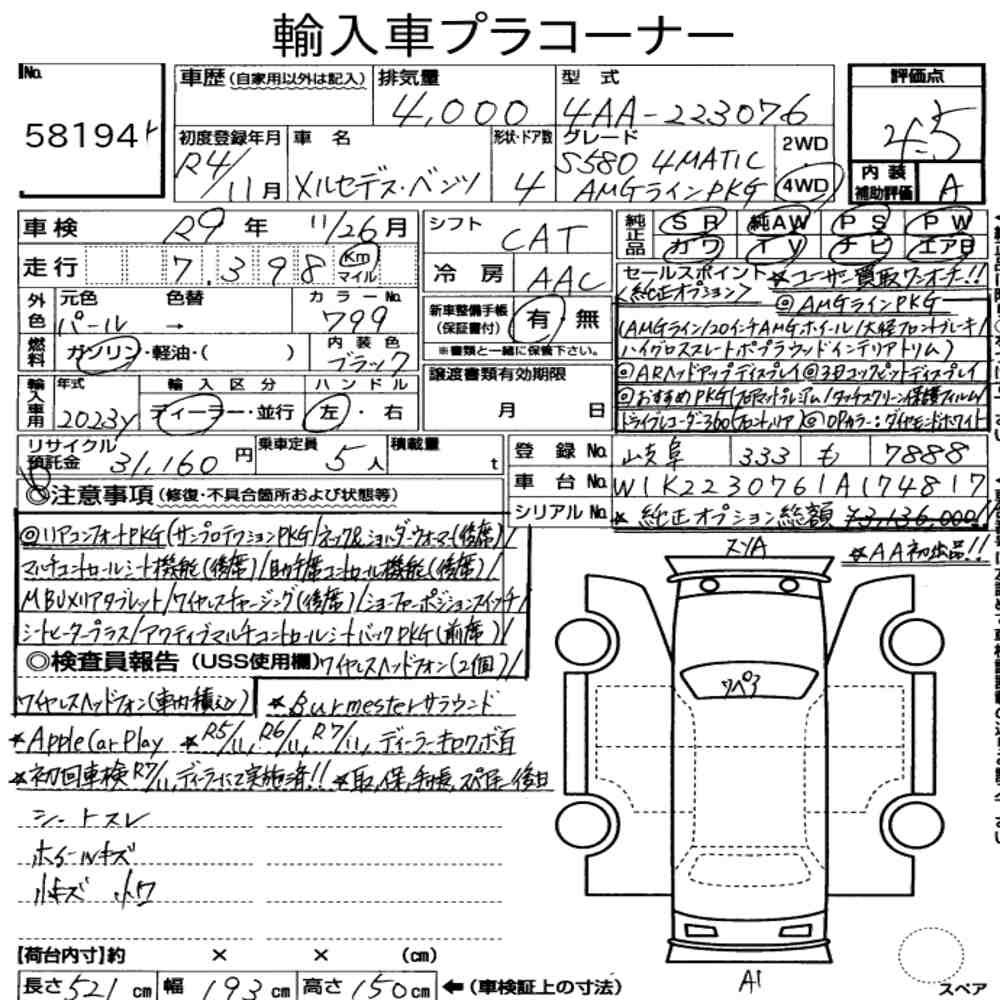 輸入車プラコーナー
No. 58194
車歴(自家用以外は記入) 排気量 4,000 型式 4AA-223076 評価点 4.5
初度登録年月 R4/11月 車名 メルセデス・ベンツ 形状・ドア数 4 グレード S580 4MATIC AMGラインPKG 2WD 4WD 内装補助評価 A
車検 R9年 11/26月 シフト CAT 純正品 SR 純AW PS PW
走行 7,398 Km マイル 冷房 AAC カワ TV ナビ エアB
外色 元色 パール → 色替 カラーNo. 799 新車整備手帳(保証書付) 有・無 ※書類と一緒に保管下さい。
燃料 ガソリン・軽油・( ) 内装色 ブラック
輸入車用 年式 2023y 輸入区分 ディーラー・並行 ハンドル 左・右 譲渡書類有効期限 月 日
リサイクル預託金 31,160円 乗車定員 5人 積載量 t
セールスポイント ★ユーザー買取ワンオーナー!!
<純正オプション> ◎AMGラインPKG
(AMGライン/20インチAMGホイール/大径フロントブレーキ/
ハイグロススレートポプラウッドインテリアトリム)
◎ARヘッドアップディスプレイ◎3Dコックピットディスプレイ
◎おすすめPKG(フロアマットプレミアム/タッチスクリーン保護フィルム/
ドライブレコーダー360(フロント,リア)◎OPカラー:ダイヤモンドホワイト
登録No. 岐阜 333 も 7888
車台No. W1K2230761A174817
シリアルNo. ★純正オプション総額 ¥3,136,000/
★AA初出品!!
◎注意事項(修復・不具合箇所および状態等)
◎リアコンフォートPKG(サンプロテクションPKG/ネック&ショルダーウォーマー(後席)/
マルチコントロールシート機能(後席)/助手席コントロール機能(後席)/
MBUXリアタブレット/ワイヤレスチャージング(後席)/ショーファーポジションスイッチ/
シートヒータープラス/アクティブマルチコントロールシートバックPKG(前席)/
◎検査員報告(USS使用欄)ワイヤレスヘッドフォン(2個)/
ワイヤレスヘッドフォン(車内積込) ★Burmesterサラウンド
★AppleCarPlay ★R5/11,R6/11,R7/11,ディーラーキロクボ有
★初回車検R7/11,ディーラーにて実施済!! ★取,保,手帳,スペキー後日
シートスレ
ホイールキズ
小キズ 小ワ
スソA
ワペア
A1
【荷台内寸】約 × × (cm)
長さ521cm 幅193cm 高さ150cm ←(車検証上の寸法)
スペア